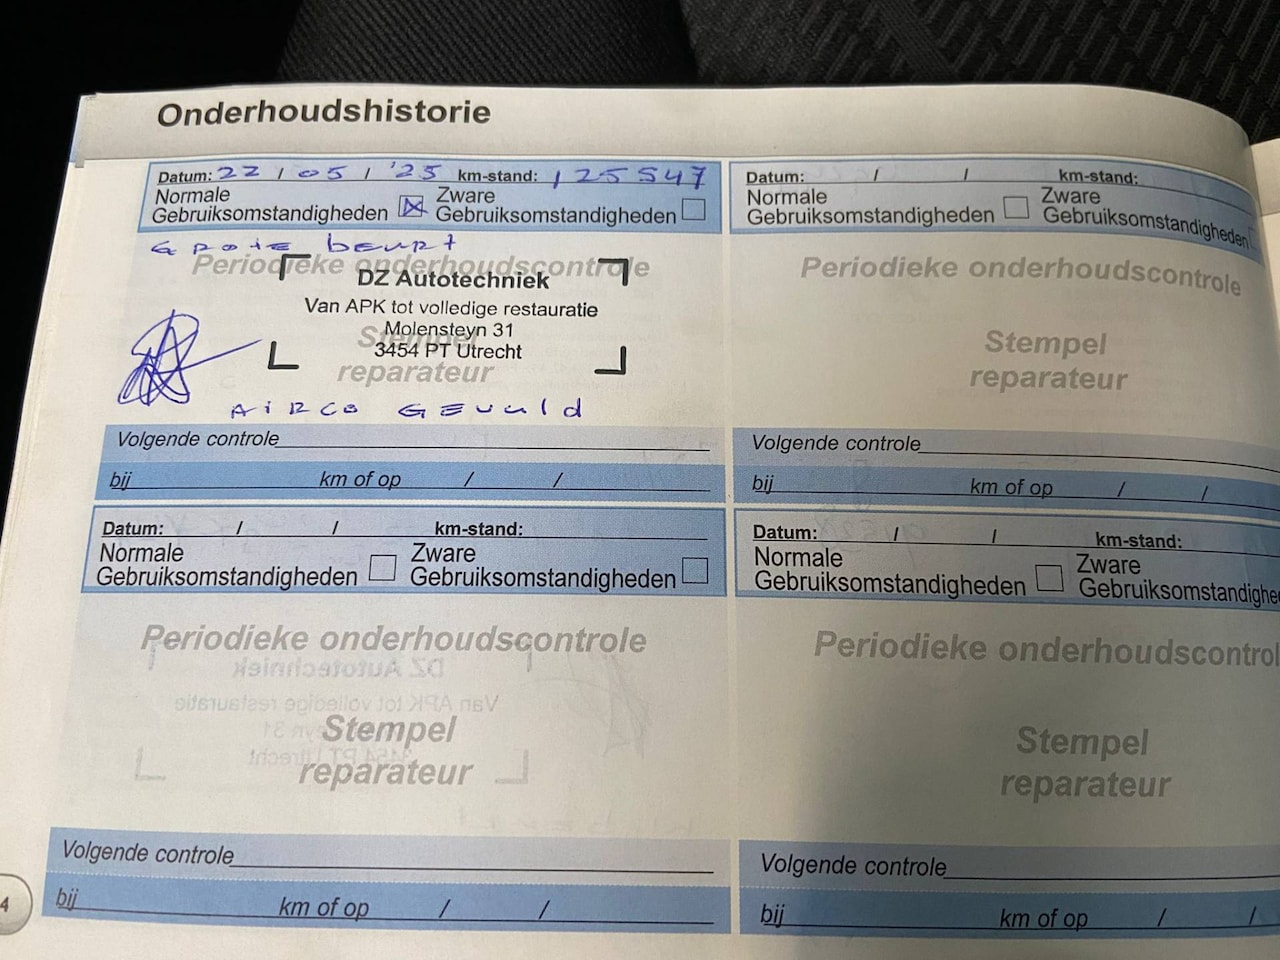 Onderhoudshistorie
Datum: 22 / 05 / '25 km-stand: 125547
Normale Gebruiksomstandigheden Zware Gebruiksomstandigheden
Grote beurt
Periodieke onderhoudscontrole
DZ Autotechniek
Van APK tot volledige restauratie
Molensteyn 31
Stempel
3454 PT Utrecht
reparateur
Airco Gevuld
Volgende controle
bij km of op / /
Datum: / / km-stand:
Normale Gebruiksomstandigheden Zware Gebruiksomstandigheden
Periodieke onderhoudscontrole
Stempel
reparateur
Volgende controle
bij km of op / /
Datum: / / km-stand:
Normale Gebruiksomstandigheden Zware Gebruiksomstandigheden
Periodieke onderhoudscontrole
Stempel
reparateur
Volgende controle
bij km of op / /
Datum: / / km-stand:
Normale Gebruiksomstandigheden Zware Gebruiksomstandighe
Periodieke onderhoudscontrol
Stempel
reparateur
Volgende controle
bij km of op / /
4